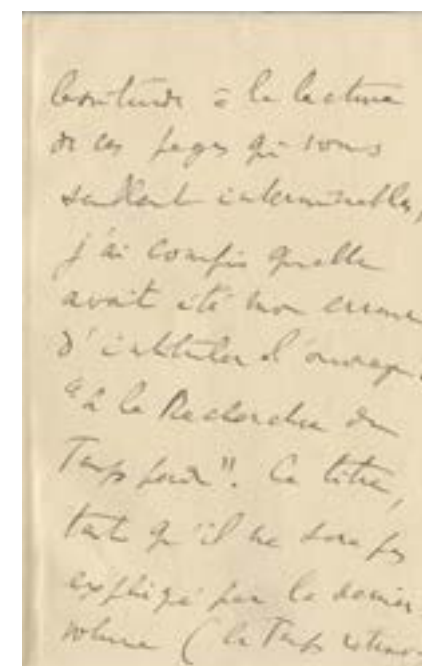 à la lecture
de ces pages qui vous
semblent interminables,
j'ai compris quelle
avait été mon erreur
d'intituler l'ouvrage
"à la Recherche du
Temps perdu". Ce titre,
tant qu'il ne sera pas
expliqué par le dernier
volume (le Temps retrouvé